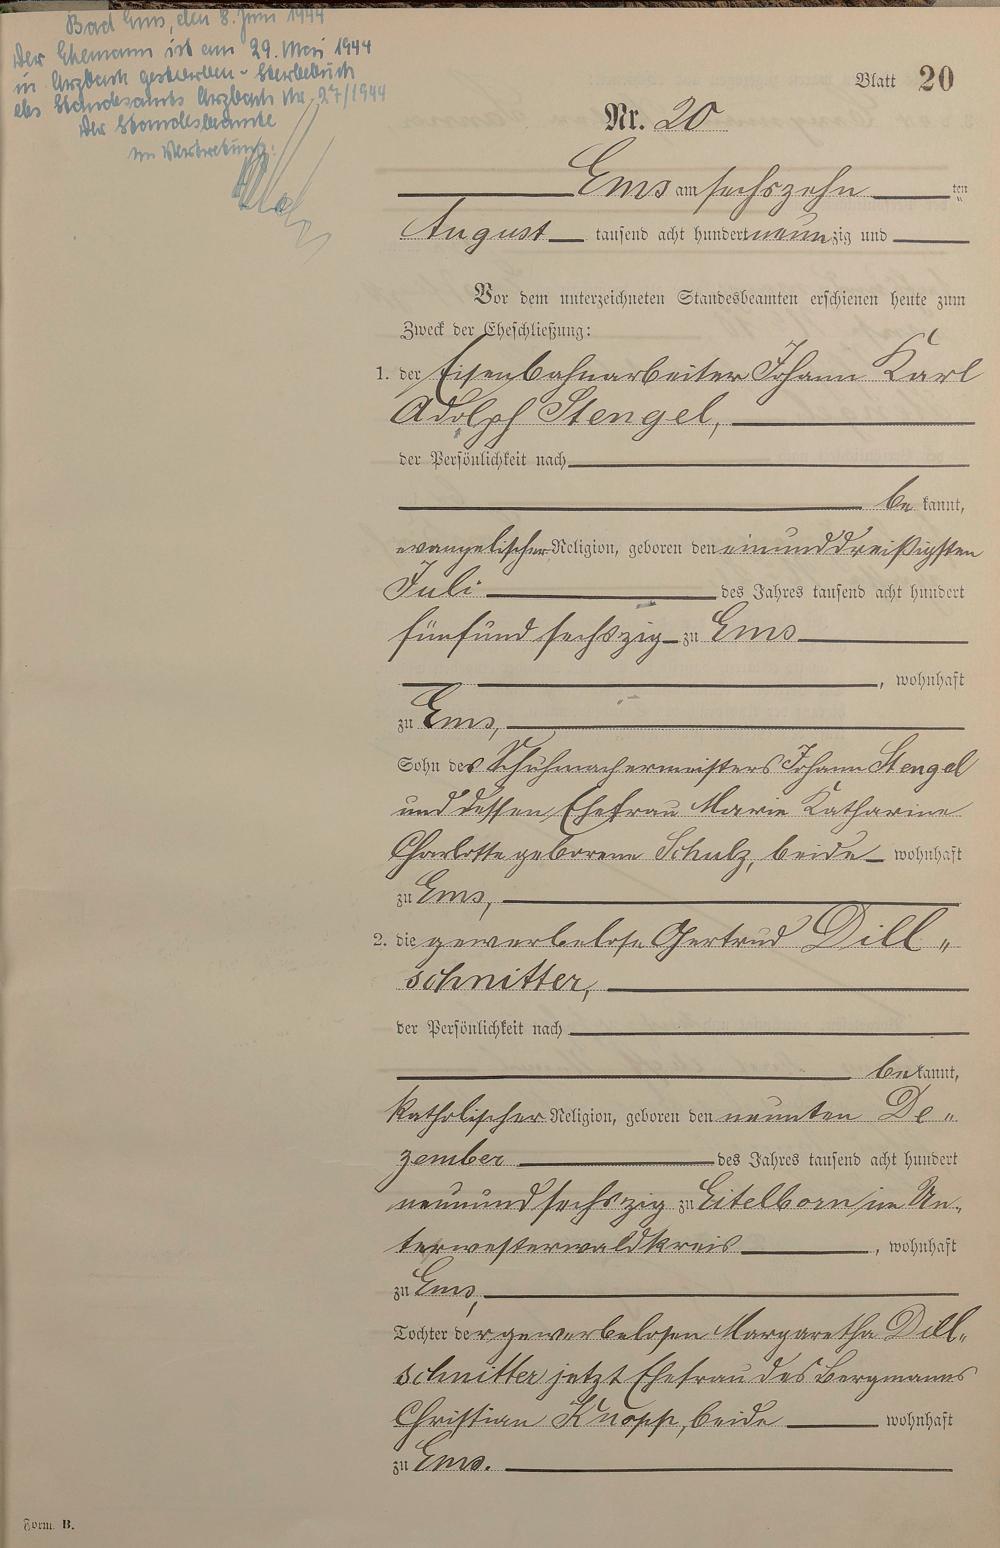 Bad Ems, den 8. Juni 1944
Der Ehemann ist am 29. Mai 1944
in Arzbach gestorben - Sterbebuch
des Standesamts Arzbach Nr. 27/1944
Der Standesbeamte
In Vertretung:
Blatt 20
Nr. 20
Ems am sechszehn ten
August tausend acht hundert neunzig und
Vor dem unterzeichneten Standesbeamten erschienen heute zum
Zweck der Eheschließung:
1. der Eisenbahnarbeiter Johann Karl
Adolph Stengel,
der Persönlichkeit nach
be kannt,
evangelischer Religion, geboren den einunddreißigsten
Juli des Jahres tausend acht hundert
fünfundsechszig zu Ems
, wohnhaft
zu Ems,
Sohn des Schuhmachermeisters Johann Stengel
und dessen Ehefrau Marie Katharine
Charlotte geborene Schulz, beide wohnhaft
zu Ems,
2. die gewerbelose Gertrud Dill„
schnitter,
der Persönlichkeit nach
be kannt,
katholischer Religion, geboren den neunten De„
zember des Jahres tausend acht hundert
neunundsechszig zu Eitelborn im Un„
terwesterwaldkreis , wohnhaft
zu Ems,
Tochter der gewerbelosen Margaretha Dill„
schnitter jetzt Ehefrau des Bergmanns
Christian Knopp, beide wohnhaft
zu Ems.
Form. B.